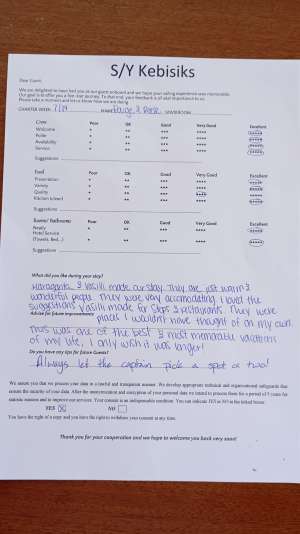 S/Y Kebisiks
Dear Guest,
We are delighted to have had you as our guest onboard and we hope your sailing experience was memorable.
Our goal is to offer you a five-star journey. To that end, your feedback is of vital importance to us.
Please take a moment and let us know how we are doing.
CHARTER WEEK: NAME
Crew Poor OK Good Very Good Excellent
Welcome * ** *** **** *****
Polite * ** *** **** *****
Availability * ** *** **** *****
Service * ** *** **** *****
Suggestions
Food Poor OK Good Very Good Excellent
Presentation * ** *** **** *****
Variety * ** *** **** *****
Quality * ** *** **** *****
Kitchen Island * ** *** **** *****
Suggestions
Rooms/ Bathrooms Poor OK Good Very Good Excellent
Ready * ** *** **** *****
Hotel Service
(Towels, Bed...) * ** *** **** *****
Suggestions
What did you like during your stay?
Margarita & Vasili made our stay. They are just warm &
wonderful people. They were very accomodating, I loved the
suggestions Vasili made for stops & restaurants. They were
Advice for future improvements
places I wouldn't have thought of on my own.
This was one of the best & most memorable vacations
of my life, I only wish it was longer!
Do you have any tips for future Guests?
Always let the captain pick a spot or two!
We assure you that we process your data in a lawful and transparent manner. We develop appropriate technical and organizational safeguards that
ensure the security of your data. After the anonymization and encryption of your personal data we intend to process them for a period of 5 years for
statistic reasons and to improve our services. Your consent is an indispensable condition. You can indicate YES or NO in the linked boxes:
YES X NO
You have the right of a copy and you have the right to withdraw your consent at any time.
Thank you for your cooperation and we hope to welcome you back very soon!